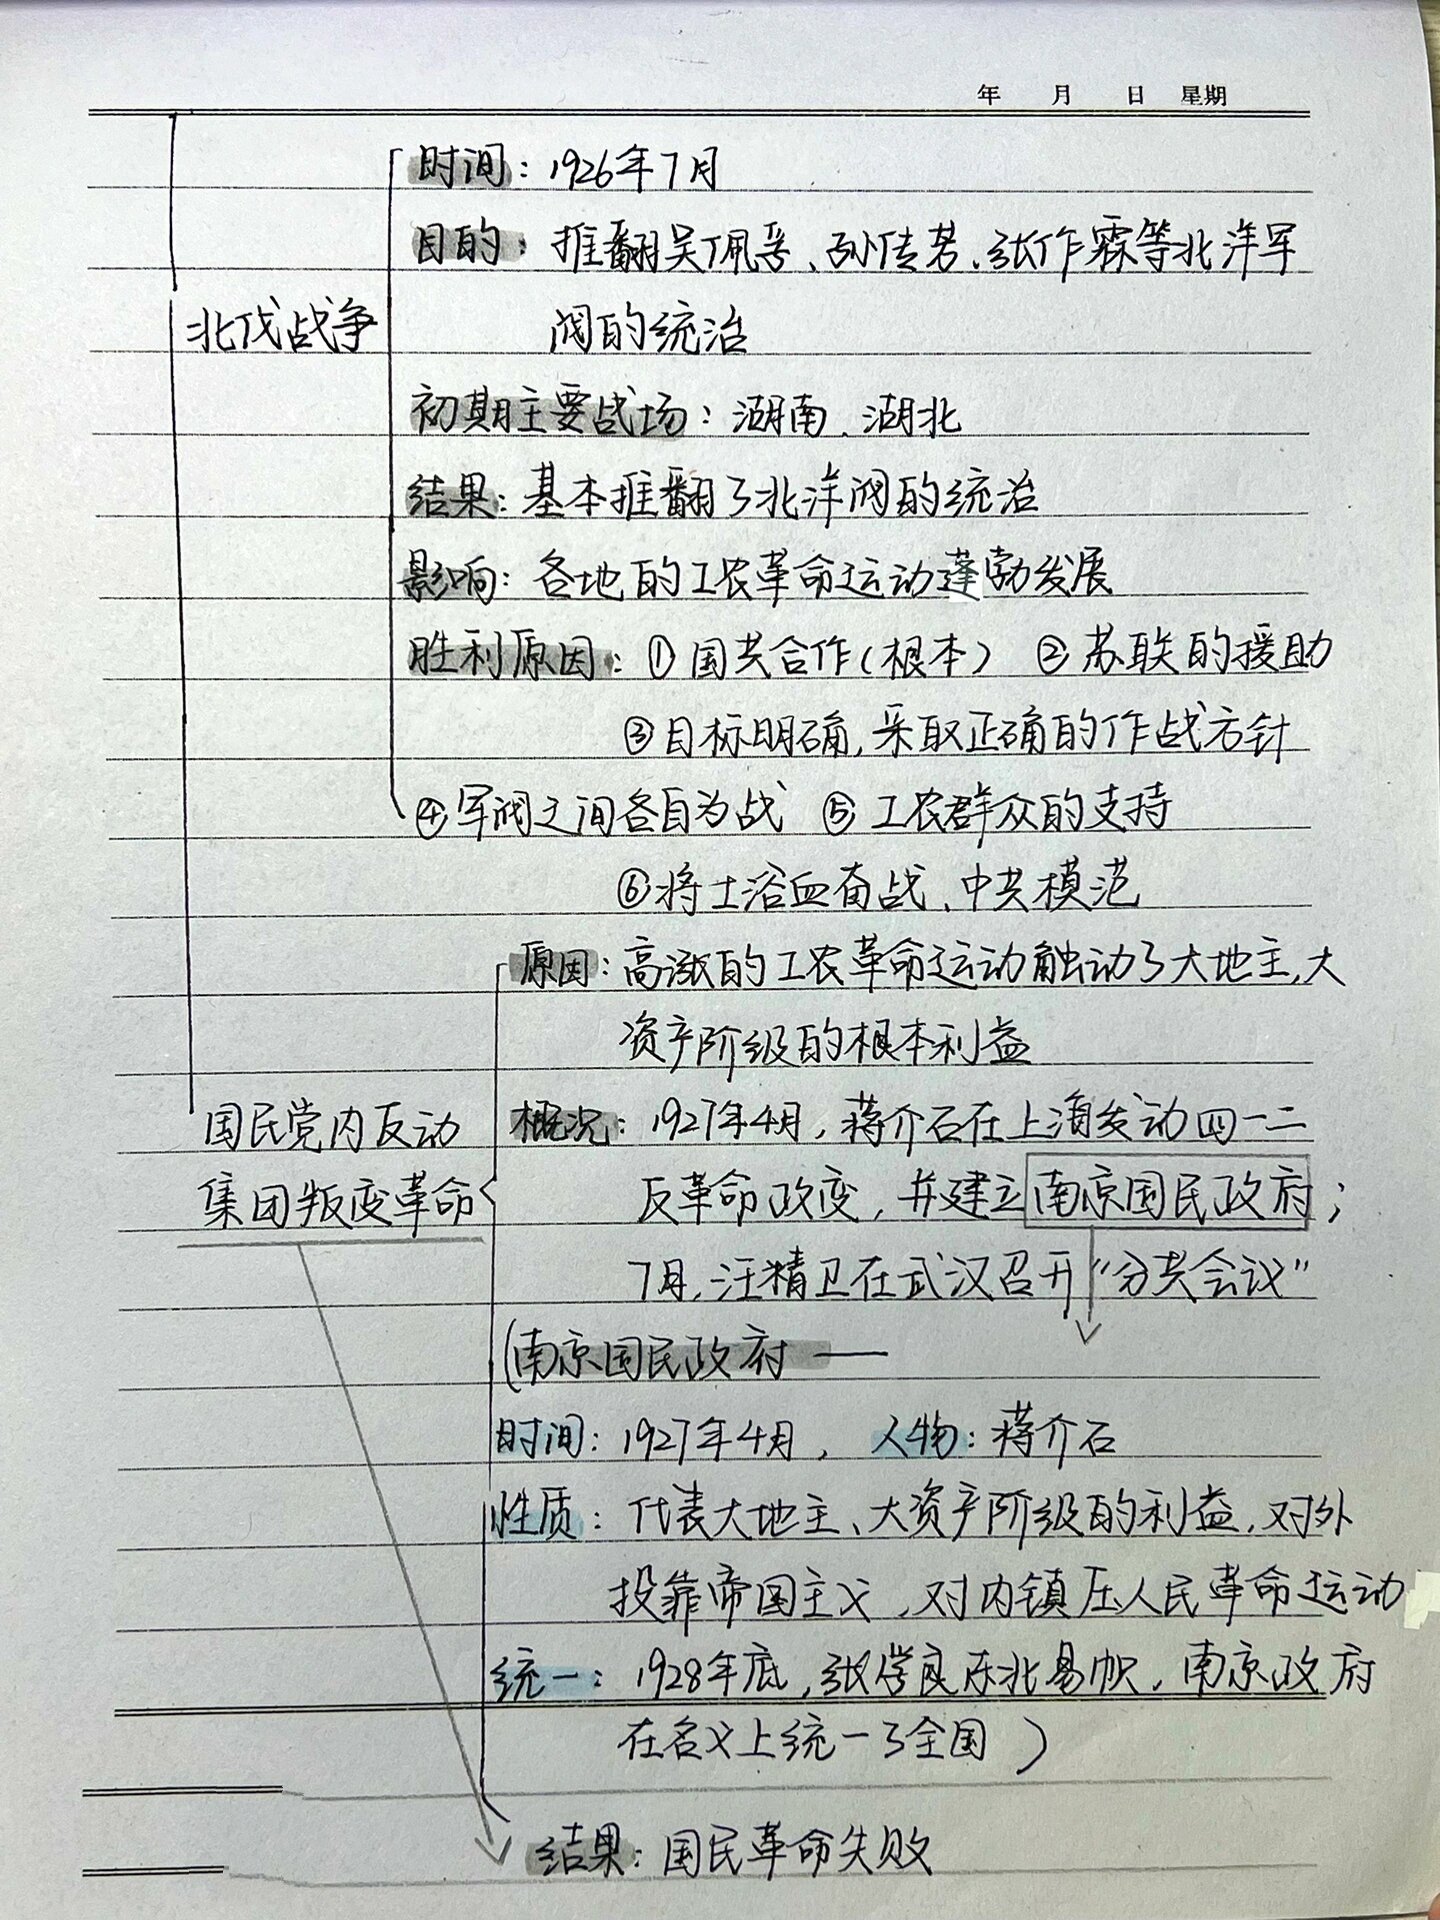 年 月 日 星期
时间：1926年7月
目的：推翻吴佩孚、孙传芳、张作霖等北洋军
阀的统治
北伐战争
初期主要战场：湖南、湖北
结果：基本推翻了北洋阀的统治
影响：各地的工农革命运动蓬勃发展
胜利原因：①国共合作（根本） ②苏联的援助
③目标明确，采取正确的作战方针
④军阀之间各自为战 ⑤工农群众的支持
⑥将士浴血奋战、中共模范
原因：高涨的工农革命运动触动了大地主，大
资产阶级的根本利益
国民党内反动
集团叛变革命
概况：1927年4月，蒋介石在上海发动四一二
反革命政变，并建立南京国民政府；
7月，汪精卫在武汉召开“分共会议”
（南京国民政府——
时间：1927年4月，人物：蒋介石
性质：代表大地主、大资产阶级的利益，对外
投靠帝国主义，对内镇压人民革命运动
统一：1928年底，张学良东北易帜，南京政府
在名义上统一了全国）
结果：国民革命失败